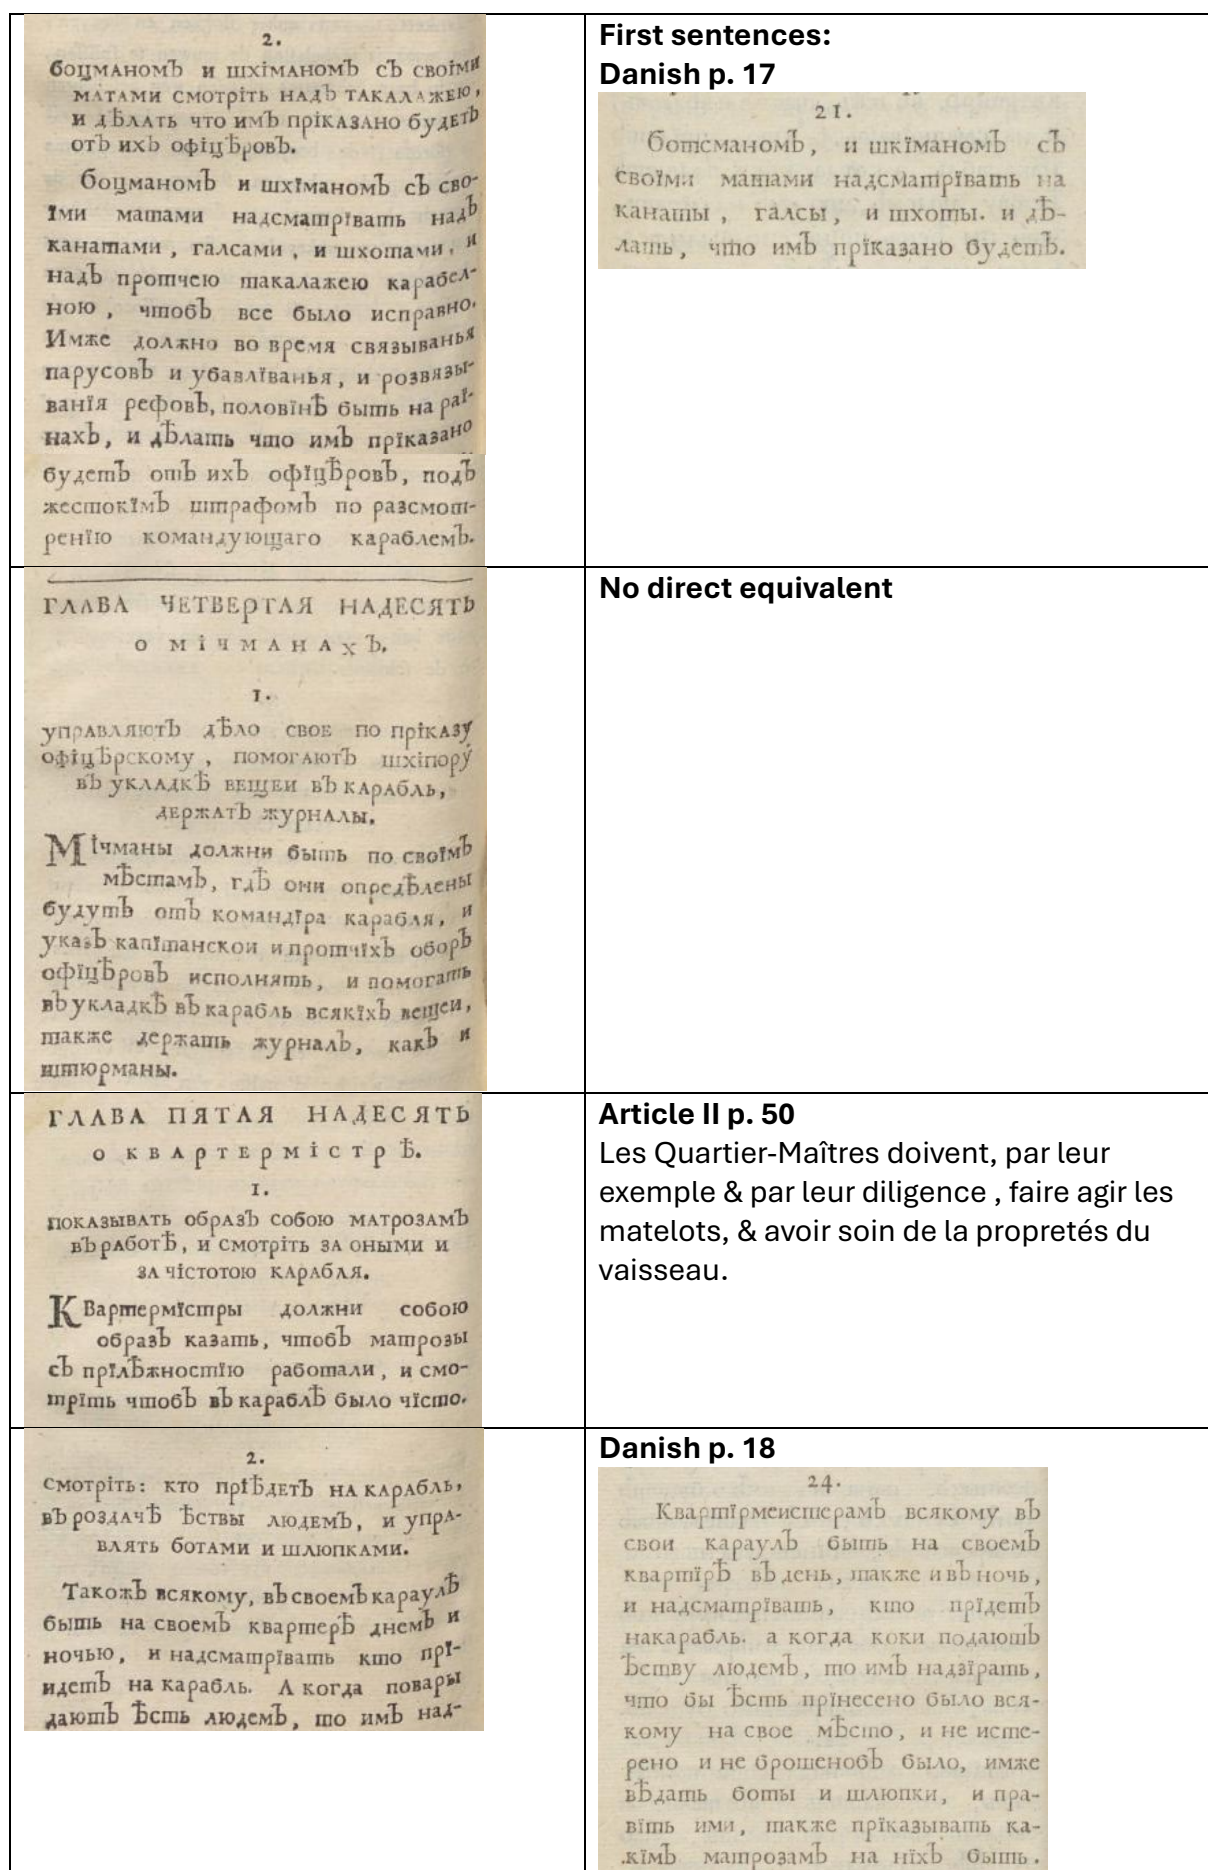 2.
боцманомЪ и шхіманомЪ сЪ своіми
матами смотріть надЪ такалажею,
и дѣлать что имЪ пріказано будетЪ
отЪ ихЪ офіцѣровЪ.
боцманомЪ и шхїманомЪ сЪ сво-
їми матами надсматрївать надЪ
канатами, галсами, и шхотами, и
надЪ протчею такалажею карабел-
ною, чтобЪ все было исправно.
Имже должно во время связыванья
парусовЪ и убавлїванья, и розвязы-
ванїя рефовЪ, половїнѣ быть на раї-
нахЪ, и дѣлать что имЪ прїказано
будетЪ отЪ ихЪ офїцѣровЪ, подЪ
жестокїмЪ штрафомЪ по разсмот-
ренїю командующаго караблемЪ.
First sentences:
Danish p. 17
21.
ботсманомЪ, и шкїманомЪ сЪ
своїми матами надсматрївать на
канаты, галсы, и шхоты. и дѣ-
лать, что имЪ прїказано будетЪ.
ГЛАВА ЧЕТВЕРТАЯ НАДЕСЯТЬ
о мічманахЪ.
1.
управляютЪ дѣло свое по пріказу
офіцѣрскому, помогаютЪ шхіпору
вЪ укладкѣ вещеи вЪ карабль,
держатЪ журналы.
Мїчманы должни быть по своїмЪ
мѣстамЪ, гдѣ они опредѣлены
будутЪ отЪ командїра карабля, и
указЪ капїтанскои и протчїхЪ оборЪ
офїцѣровЪ исполнять, и помогать
вЪ укладкѣ вЪ карабль всякїхЪ вещеи,
также держать журналЪ, какЪ и
штюрманы.
No direct equivalent
ГЛАВА ПЯТАЯ НАДЕСЯТЬ
о квартермістрѣ.
1.
показывать образЪ собою матрозамЪ
вЪ работѣ, и смотріть за оными и
за чістотою карабля.
Квартермїстры должни собою
образЪ казать, чтобЪ матрозы
сЪ прїлѣжностїю работали, и смо-
трїть чтобЪ вЪ караблѣ было чїсто.
Article II p. 50
Les Quartier-Maîtres doivent, par leur
exemple & par leur diligence , faire agir les
matelots, & avoir soin de la propretés du
vaisseau.
2.
смотріть: кто пріѣдетЪ на карабль,
вЪ роздачѣ ѣствы людемЪ, и упра-
влять ботами и шлюпками.
ТакожЪ всякому, вЪ своемЪ караулѣ
быть на своемЪ квартерѣ днемЪ и
ночью, и надсматрївать кто прї-
идетЪ на карабль. А когда повары
даютЪ ѣсть людемЪ, то имЪ над-
Danish p. 18
24.
КвартїрмеистерамЪ всякому вЪ
свои караулЪ быть на своемЪ
квартїрѣ вЪ день, также и вЪ ночь,
и надсматрївать, кто прїдетЪ
накарабль. а когда коки подаютЪ
ѣству людемЪ, то имЪ надзїрать,
что бы ѣсть прїнесено было вся-
кому на свое мѣсто, и не исте-
рено и не брошенобЪ было, имже
вѣдать боты и шлюпки, и пра-
вїть ими, также прїказывать ка-
кїмЪ матрозамЪ на нїхЪ быть.